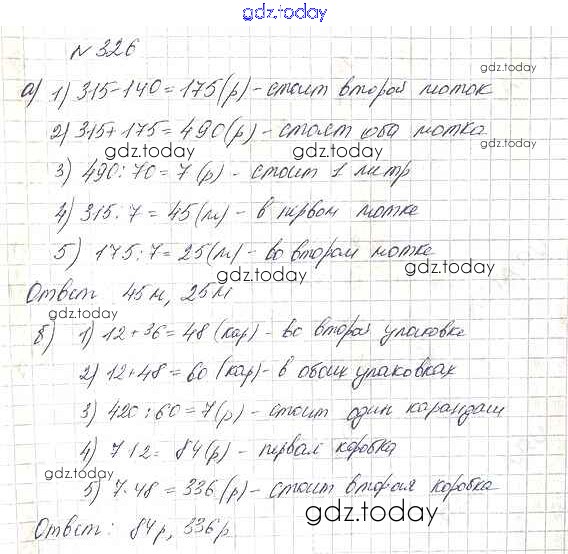 gdz.today
№ 326
gdz.today
а) 1) 315-140=175(р)-стоит второй моток
2) 315+175=490(р)-стоят оба мотка
gdz.today
gdz.today
3) 490:70=7(р)-стоит 1 литр
4) 315:7=45(м)-в первом мотке
5) 175:7=25(м)-во втором мотке
gdz.today
gdz.today
Ответ 45м, 25м
gdz.today
б) 1) 12+36=48(кар)-во второй упаковке
2) 12+48=60(кар)-в обоих упаковках
3) 420:60=7(р)-стоит один карандаш
4) 7 12=84(р)-первая коробка
gdz.today
5) 7·48=336(р)-стоит вторая коробка
gdz.today
Ответ: 84р, 336р